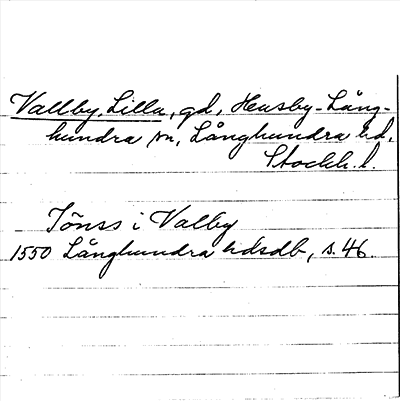 Vallby, Lilla, gd, Husby-Lång-
hundra sn, Långhundra hd,
Stockh. l.
Jönss i Valby
1550 Långhundra hdsdb, s. 46.